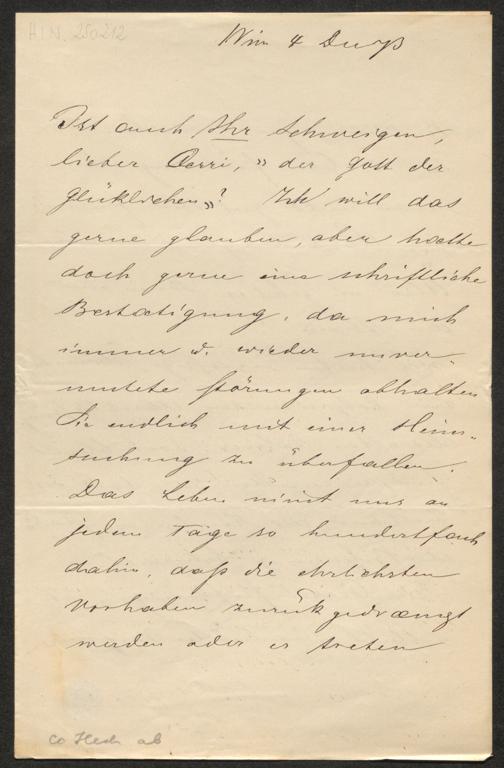 H.I.N. 250212
Wien 4
Ist auch Ihr Schweigen,
lieber Oerri, „ der Gott der
Glücklichen„? Ich will das
gerne glauben, aber haette
doch gerne eine schriftliche
Bestaetigung, da mich
immer u. wieder unver-
mutete Störungen abhalten
Sie endlich mit einer Heim-
suchung zu überfallen.
Das Leben nimt uns an
jedem Tage so hundertfach
dahin, daß die ehrlichsten
Vorhaben zurückgedraengt
werden oder es treten